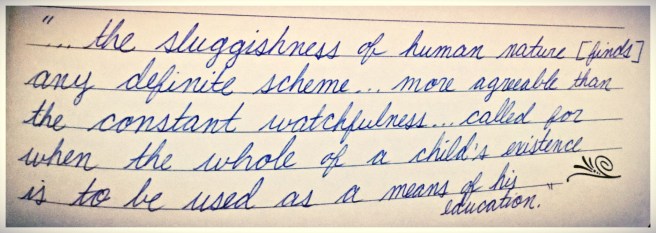 "... the sluggishness of human nature [finds]
any definite scheme... more agreeable than
the constant watchfulness... called for
when the whole of a child's existence
is to be used as a means of his
education."